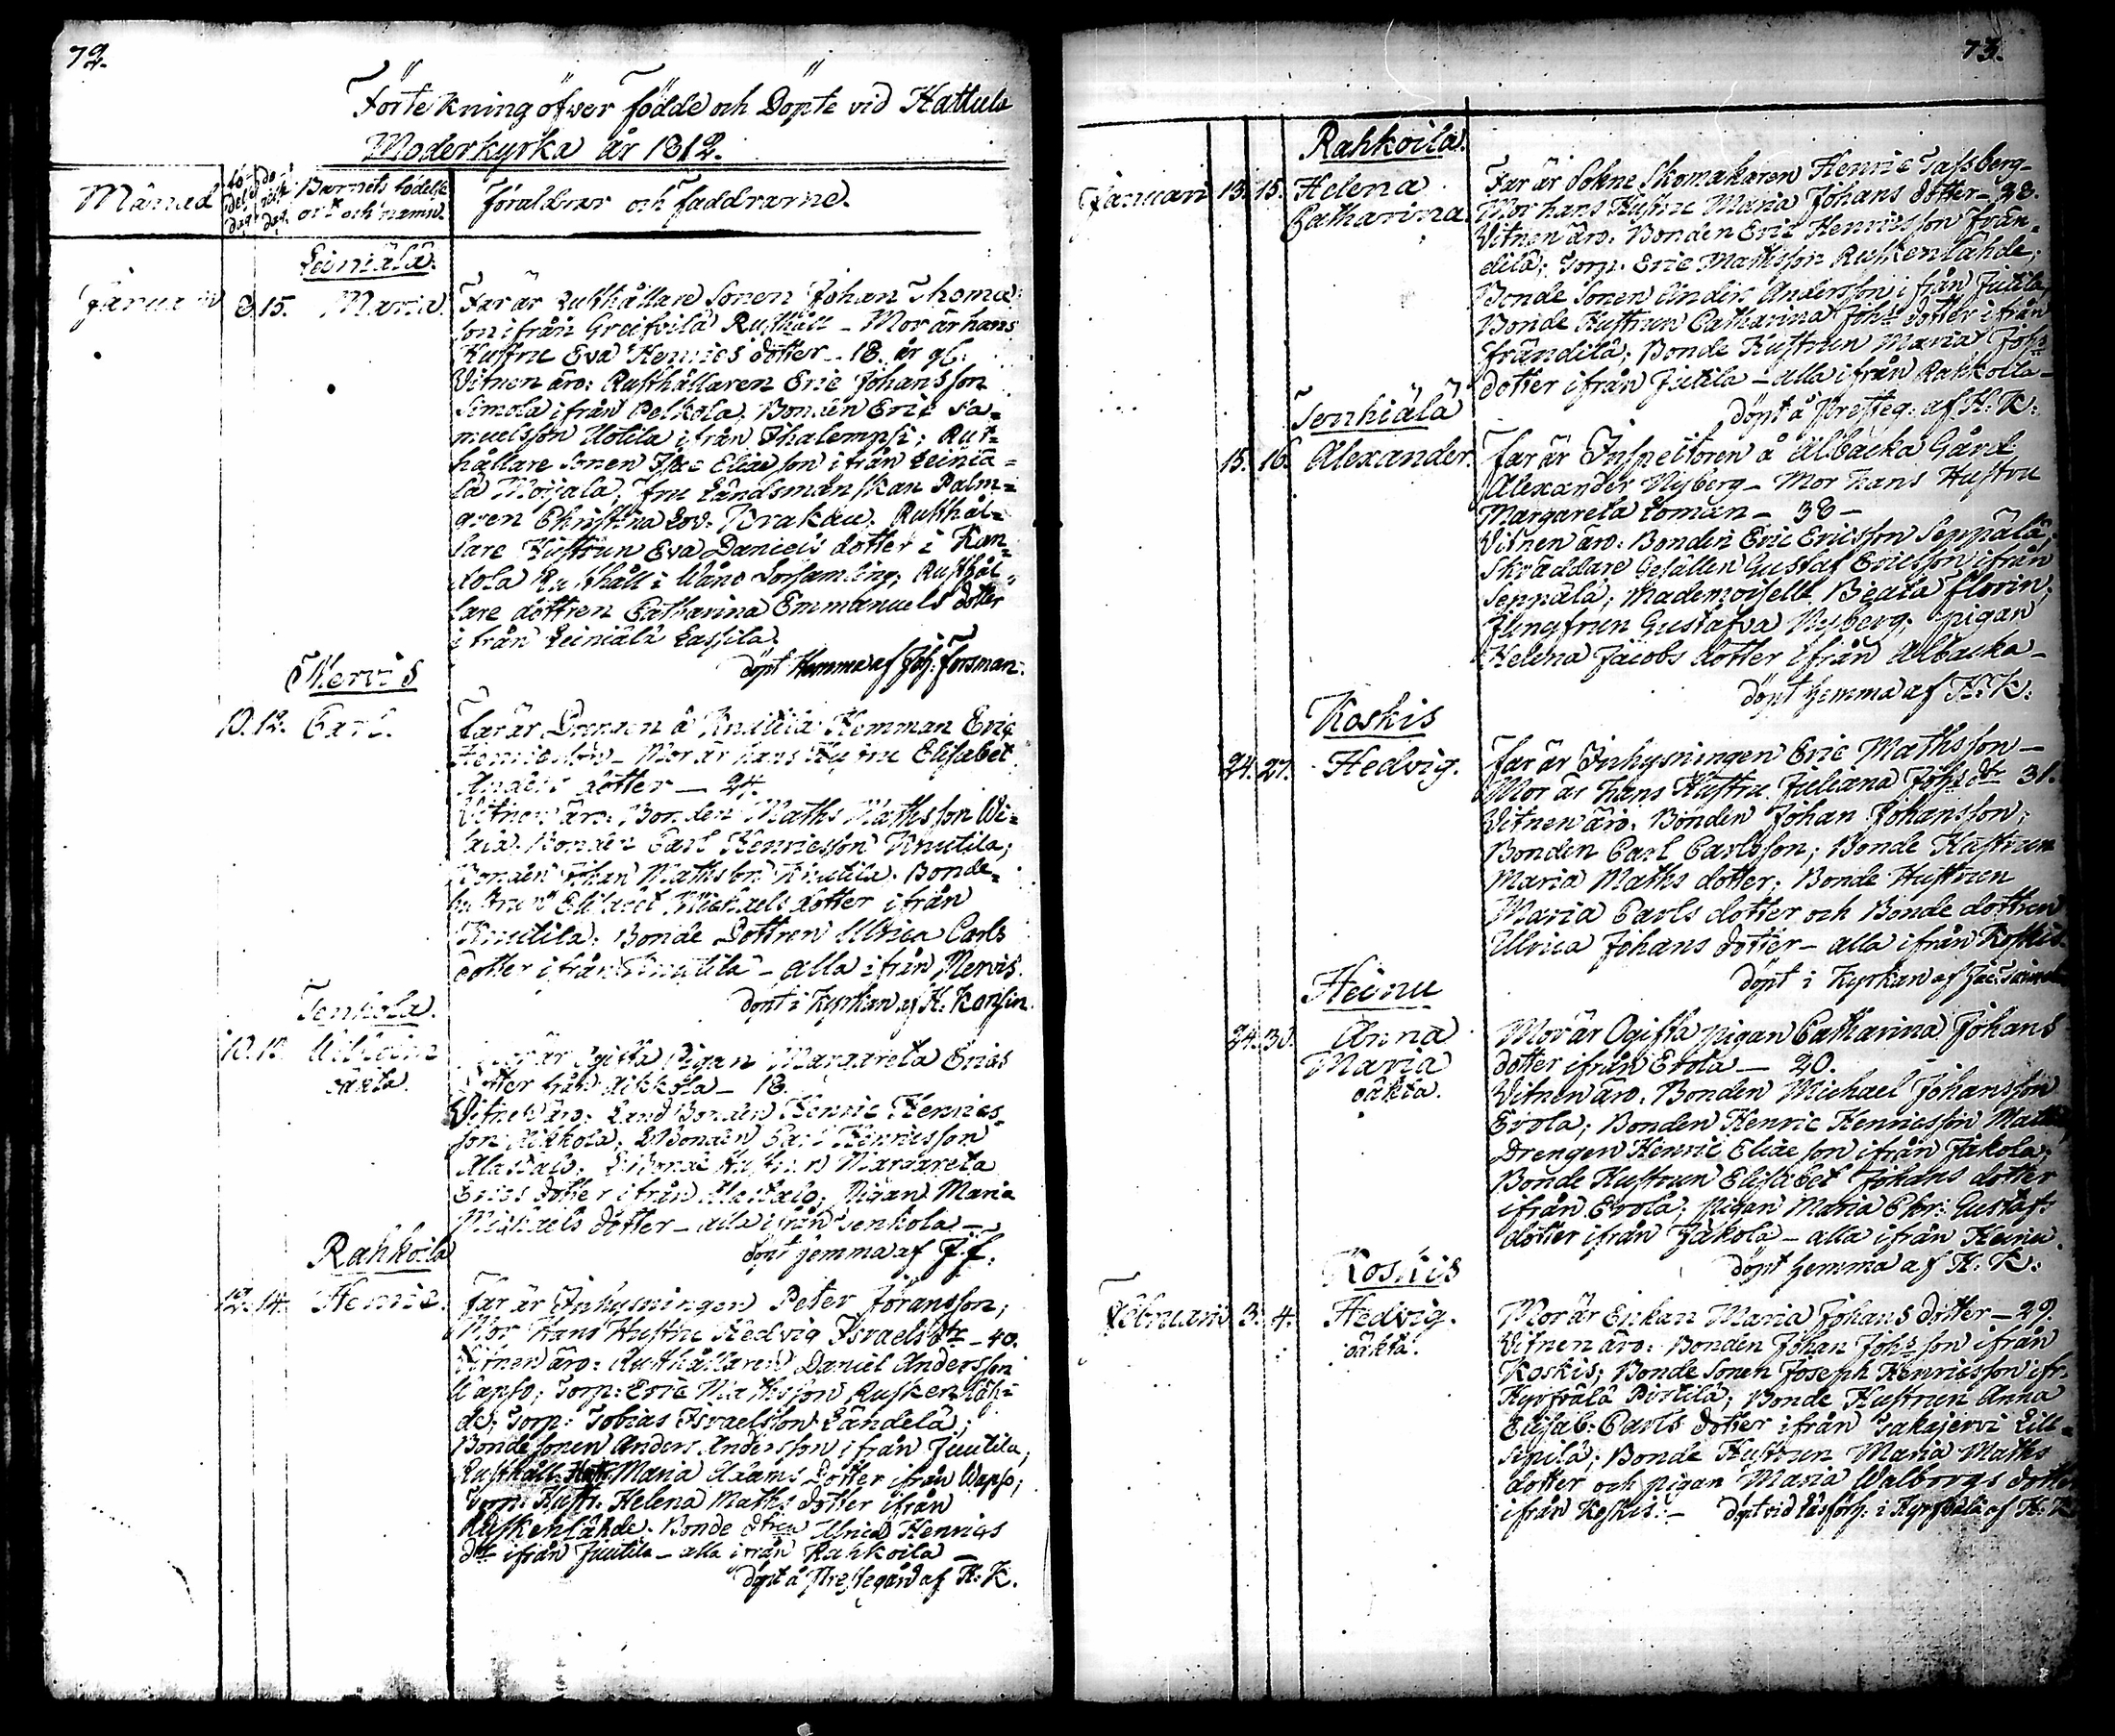 72.
Förtekning öfver födde och Döpte vid Hattula
Moderkyrka år 1812.
Månad
fö-
delse
dag.
dag.
Barnets födelse
ort och namn.
Föräldrar och Faddrarne.
Leiniälä.
Januarii 8. 15. Maria.
Far är Rusthållare Sonen Johan Thomas
son ifrån Rusthåll - Mor är hans
Hustru Eva Henrics dotter - 18. år gl.
Vitnen äro: Rusthållaren Eric Johansson
Simola ifrån Pelkola. Bonden Eric Sa=
muelsson Uotila ifrån Ihalempsi; Rust=
hållare Sonen Isac Eliæ son ifrån Leiniä=
lä Moijala; Fru Länsdmanskan Palm=
gren Christina Lov. Krakau. Rusthål=
lare Hustrun Eva Daniels dotter i Kan=
kola Rusthåll i Wånå Församling; Rusthål=
lare dottren Catharina Emmanuels dotter
ifrån Leiniälä Lassila.
döpt Hemma af Joh: Forsman.
Mervis
10. 12. Carl.
Far är Drengen å Knutila Hemman Eric
Henricsson - Mor är hans Hustru Elisabet
Anders dotter - 24.
Vitnen äro: Bonden Maths Mathsson
Bonden Carl Henricsson Knutila;
Bonden Johan Mathsson Knutila. Bonde=
hustrun Elisabet Michaels dotter ifrån
Knutila: Bonde Dottren Ulrica Carls
dotter ifrån Knutila - alla ifrån Mervis.
döpt i Kyrkan af H. Konsin.
Tenhola.
oäkta.
Mor är Ogifta Pigan Margareta Erics
dotter från - 18.
Vitnen äro: Land Bonden Henric Henrics
son L:Bonden Carl Henricsson
Alastalo; L:Bonde Hustrun Margareta
Erics dotter ifrån Alastalo; Pigan Maria
Michaels dotter - alla ifrån Tenhola -
döpt hemma af J. F.
Rahkoila
12. 14. Henric.
Far är Inhysningen Peter Jöransson;
Mor hans Hustru Hedvig Israels dtr - 40.
Vitnen äro: Rusthållaren Daniel Andersson
Wapso; Torp: Eric Mathsson Ruskenläh=
de; Torp: Tobias Israelsson Ländelä;
Bondesonen Anders Andersson ifrån Juutila;
Rusthåll: Hustr: Maria Adams Dotter ifrån Wapso;
Torp: Hustr. Helena Maths dotter ifrån
Ruskenlähde. Bonde dtren Ulrica Henrics
dtr ifrån Juutila - alla ifrån Rahkoila -
döpt å Prestegård af H. K.
73.
Rahkoila.
Januari 13. 15. Helena
Catharina.
Far är Sokne Skomakaren Henric Tassberg -
Mor hans Hustru Maria Johans dotter - 38.
Vitnen äro: Bonden Eric Henricsson Frän=
dilä; Torp. Eric Mathsson Ruskenlähde;
Bonde Sonen Anders Andersson ifrån Juutila
Bonde Hustrun Catharina Johs dotter ifrån
Frändilä; Bonde Hustrun Maria Johs
dotter ifrån Jutila - alla ifrån Rahkoila -
döpt å Presteg: af H. K:
Tenhiälä
15. 16. Alexander.
Far är Inspectoren å Albacka Gård
Alexander Nyberg - Mor hans Hustru
Margareta Loman - 38 -
Vitnen äro: Bonden Eric Ericsson Seppälä;
Skräddare Gesällen Gustaf Ericsson ifrån
Seppälä; Mademoiselle Beata Florin;
Jungfrun Gustafva Nyberg; pigan
Helena Jacobs dotter ifrån Albacka -
döpt hemma af H. K.
Koskis
24. 27. Hedvig.
Far är Inhysningen Eric Mathsson -
Mor är hans Hustru Juliana Johs dtr 31.
Vitnen äro. Bonden Johan Johansson;
Bonden Carl Carlsson; Bonde Hustrun
Maria Maths dotter; Bonde Hustrun
Maria Carls dotter och Bonde dottren
Ulrica Johans dotter - alla ifrån Koskis.
döpt i Kyrkan af Jac:
Heinu
24. 30. Anna
Maria
oäkta.
Mor är Ogifta pigan Catharina Johans
dotter ifrån Erola - 20.
Vitnen äro. Bonden Michael Johansson
Erola; Bonden Henric Henricsson
Drengen Henric Eliæ son ifrån Jakola;
Bonde Hustrun Elisabet Johans dotter
ifrån Erola; pigan Maria Chr: Gustafs
dotter ifrån Jakola - alla ifrån Heinu.
döpt hemma af H. K.
Koskis
Februari 3. 4. Hedvig.
oäkta.
Mor är Enkan Maria Johans dotter - 29.
Vitnen äro: Bonden Johan Johs son ifrån
Koskis; Bonde Sonen Joseph Henricsson ifr.
Hyrfvälä Pirtilä; Bonde Hustrun Anna
Elisab: Carls dotter ifrån Sakajervi Lill=
sipilä; Bonde Hustrun Maria Maths
dotter och pigan Maria Walborgs dotter
ifrån Koskis. - döpt vid Läsförh: i Hyrfvälä af H. K